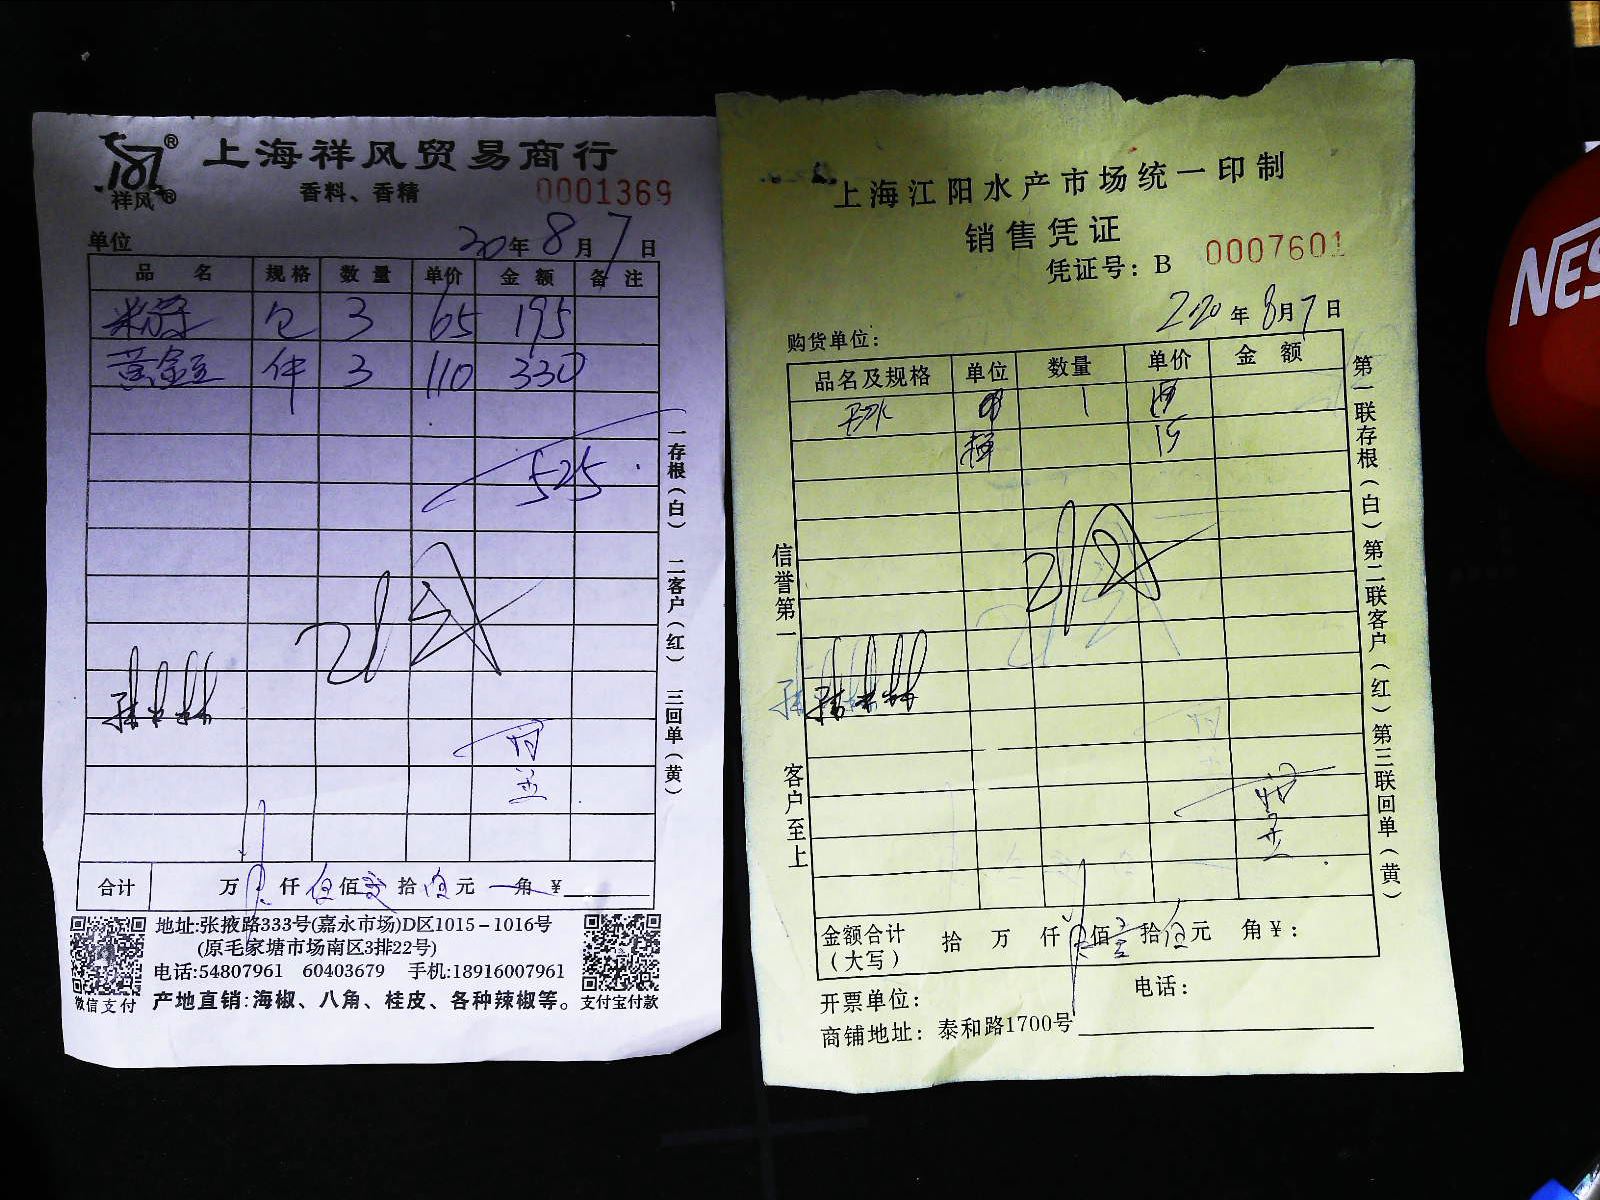 上海祥风贸易商行
祥风®
香料、香精
0001369
单位
20年8月7日
品名 规格 数量 单价 金额 备注
包 3 65 195
黄金豆 件 3 110 330
525
一存根(白) 二客户(红) 三回单(黄)
合计 万 仟 伍佰 贰拾 伍元 角 ¥
地址:张掖路333号(嘉永市场)D区1015-1016号
(原毛家塘市场南区3排22号)
电话:54807961 60403679 手机:18916007961
微信支付 产地直销:海椒、八角、桂皮、各种辣椒等。 支付宝付款
上海江阳水产市场统一印制
销售凭证
凭证号:B 0007601
2020年8月7日
购货单位:
品名及规格 单位 数量 单价 金额
1
15
信誉第一 客户至上
第一联存根(白)第二联客户(红)第三联回单(黄)
金额合计(大写) 拾 万 仟 佰 拾 伍元 角¥:
开票单位: 电话:
商铺地址: 泰和路1700号
NES